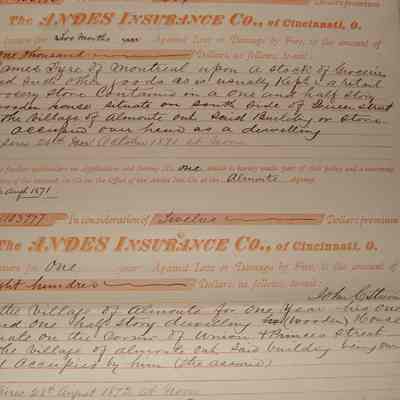 Dollars premium
The ANDES INSURANCE CO., of Cincinnati, O.
insure for Two Months Against Loss or Damage by Fire, to the amount of
One Thousand Dollars, as follows, to-wit:
Tyre of Montreal upon a Stock of Groceries
and such other goods as is usually Kept in a retail
Grocery Store Contained in a One and half Story
wooden house situate on South Side of Queen Street
the Village of Almonte Ont Said Building or Store
occupied over head as a dwelling
October 1871 at Noon
One is hereby made part of this policy and a warranty
at the Office of the Andes Ins. Co. at the Almonte agency.
Augt 1871
13777 In consideration of Twelve Dollars premium
The ANDES INSURANCE CO., of Cincinnati, O.
insure for One year Against Loss or Damage by Fire, to the amount of
Eight hundred Dollars, as follows, to-wit:
John C
the Village of Almonte for One Year his One
and One half Story dwelling (Wooden) House
on the Corner of Union & Princes Street
the Village of Almonte Ont Said building being
Occupied by him (the assured)
August 1872 at Noon